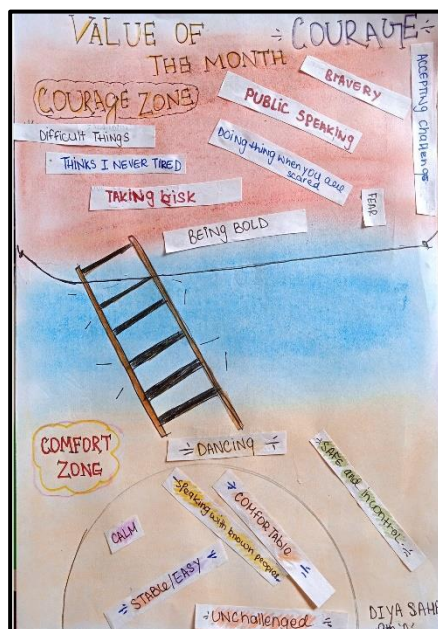 VALUE OF
THE MONTH
COURAGE
COURAGE ZONE
BRAVERY
PUBLIC SPEAKING
ACCEPTING Challenge
Difficult THINGS
DOING THING WHEN YOU ARE
scared
THINKS I NEVER TIRED
TAKING RISK
FEAR
BEING BOLD
COMFORT
ZONG
DANCING
SAFE and incontrol
Speaking with known peoples
COMFORTABLO
CALM
STABLE/EASY
UNChallenged
DIYA